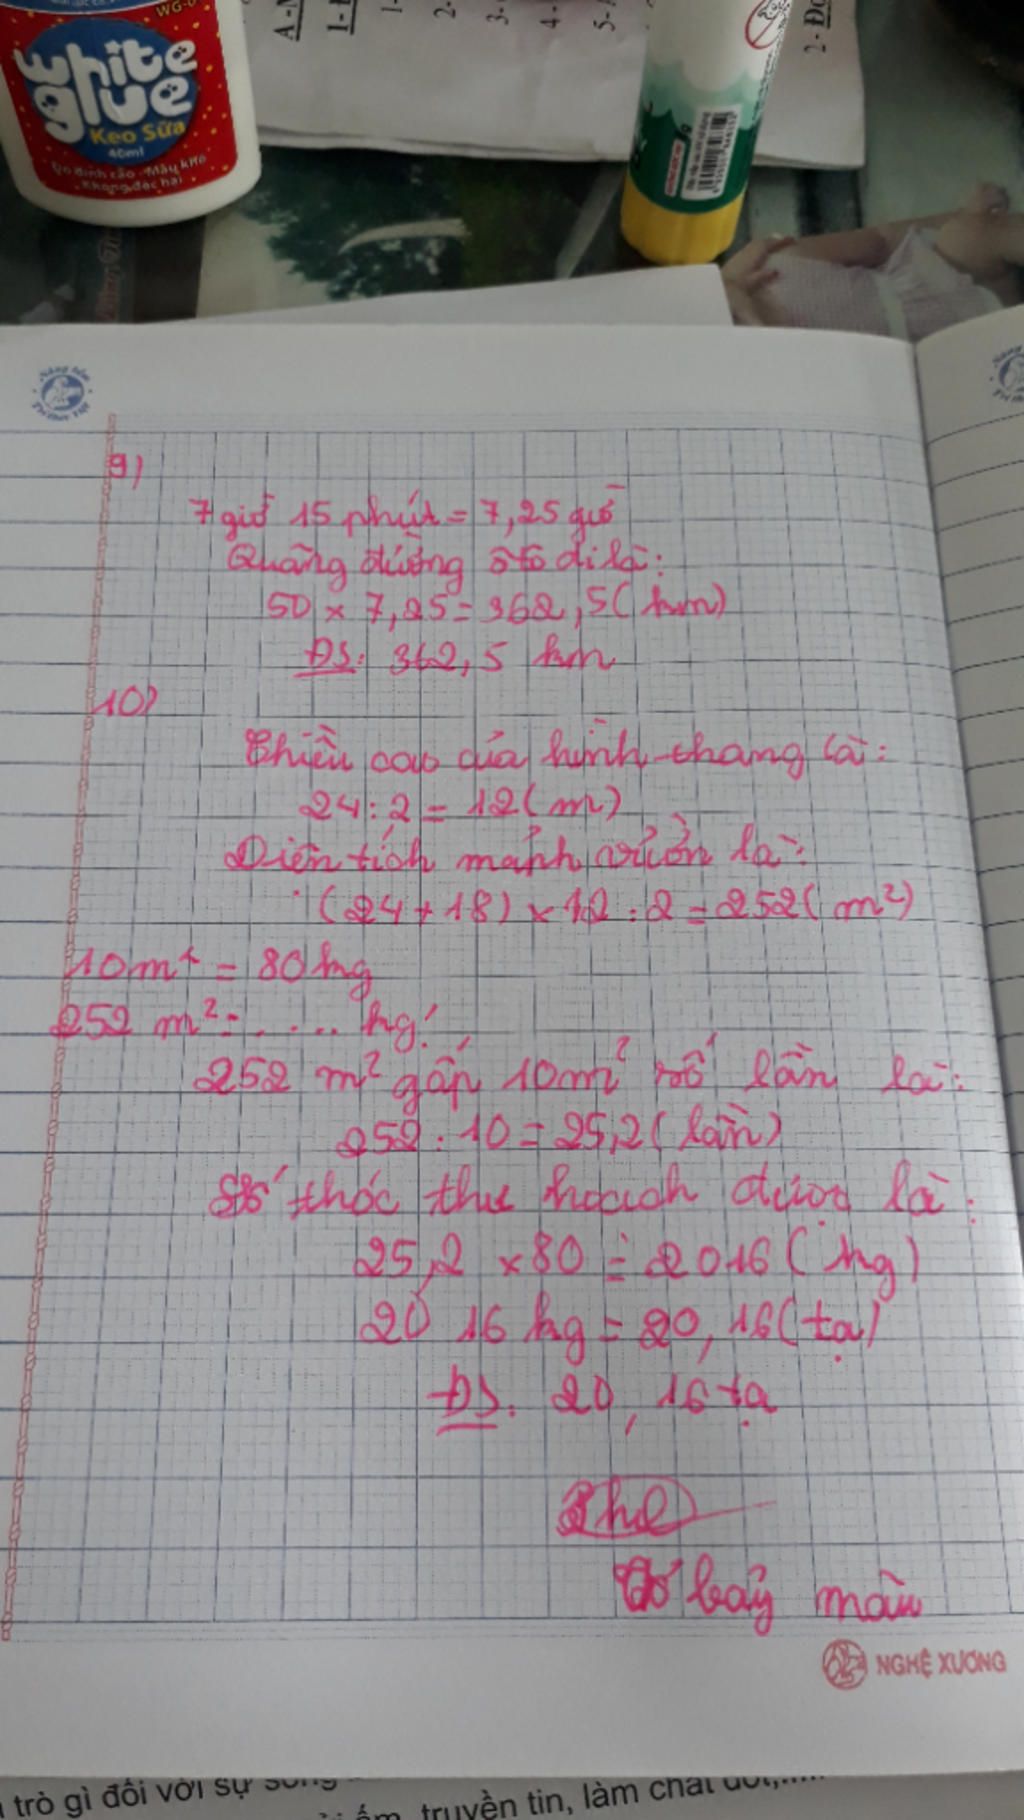 WG-
white
glue
Keo Sữa
40ml
Độ dính cao - Mau khô
Không độc hại
1-
2-
3-
4-
5-
Nâng tầm
Tri thức Việt
9)
7 giờ 15 phút = 7,25 giờ
Quãng đường ôtô đi là:
50 x 7,25 = 362,5 (km)
ĐS: 362,5 km
10)
Chiều cao của hình thang là:
24 : 2 = 12 (m)
Diện tích mảnh vườn là:
(24 + 18) x 12 : 2 = 252 (m²)
10m² = 80 kg
252 m² = ..... kg?
252 m² gấp 10m² số lần là:
252 : 10 = 25,2 (lần)
Số thóc thu hoạch được là:
25,2 x 80 = 2016 (kg)
2016 kg = 20,16 (tạ)
ĐS: 20,16 tạ
bảy màu
NGHỆ XƯƠNG
trò gì đối với sự sống
ấm, truyền tin, làm chất đốt,.....